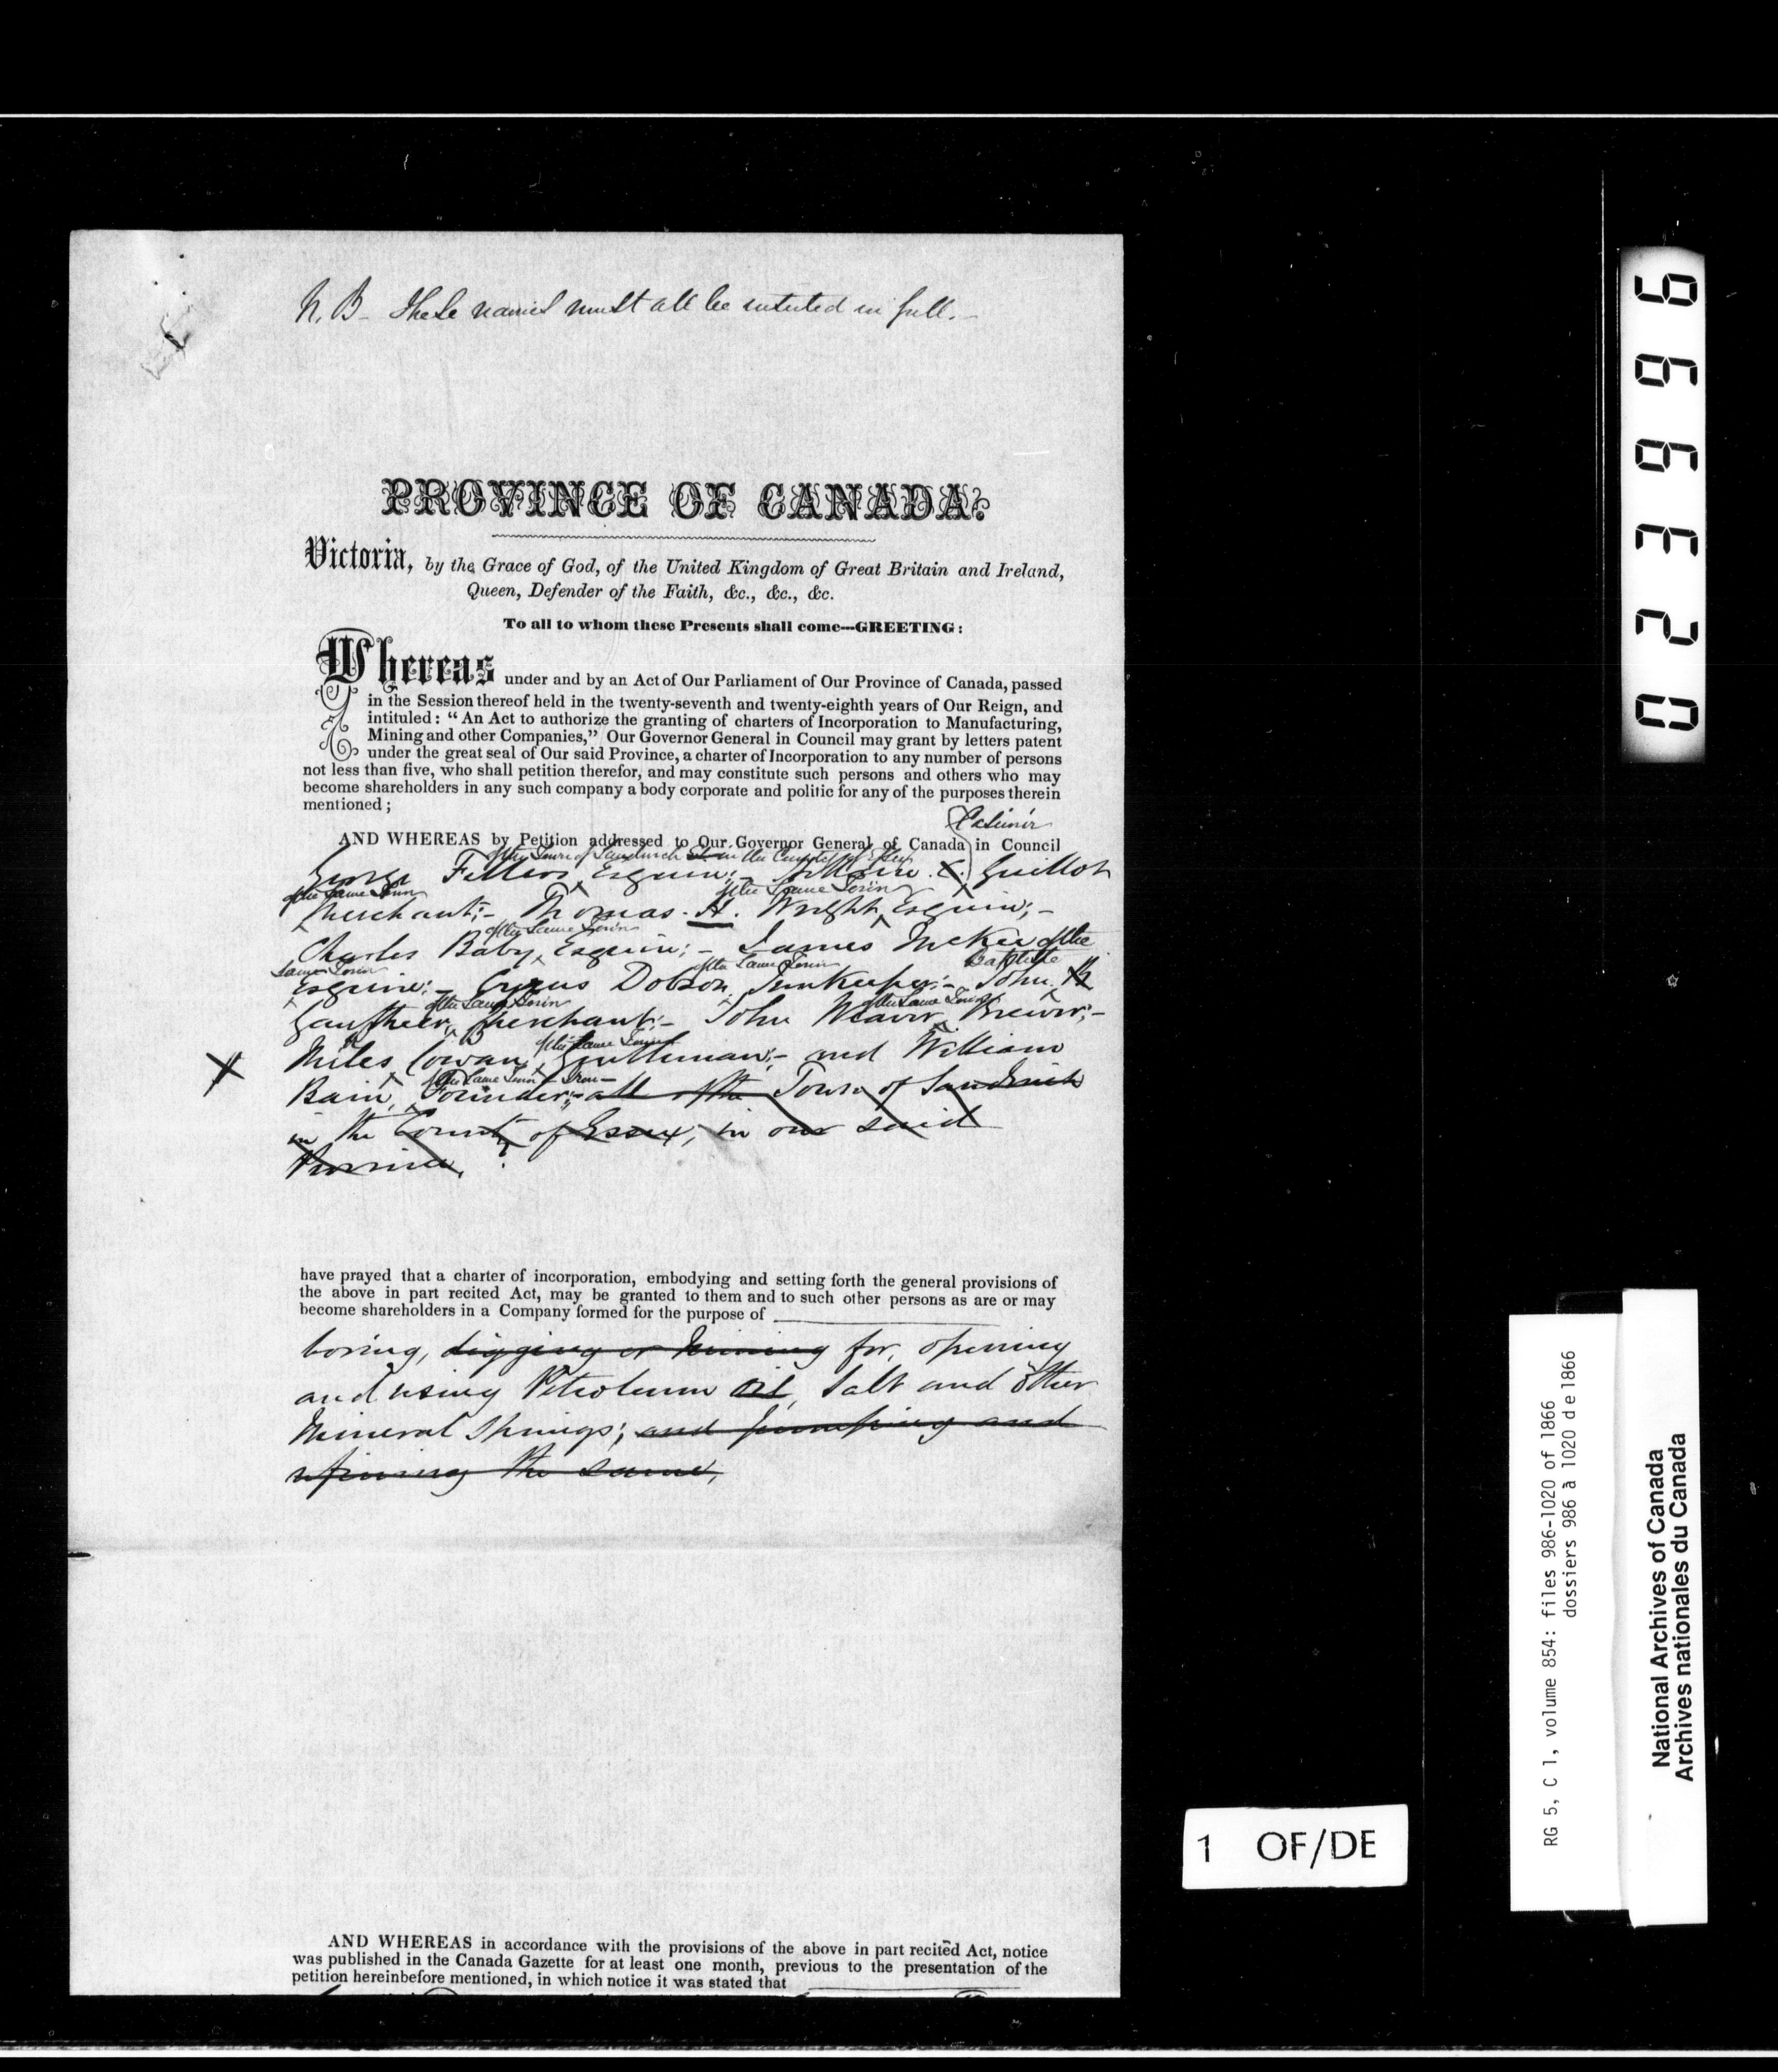 N.B- These names must all be inserted in full.-
PROVINCE OF CANADA.
Victoria, by the Grace of God, of the United Kingdom of Great Britain and Ireland,
Queen, Defender of the Faith, &c., &c., &c.
To all to whom these Presents shall come—GREETING:
Whereas under and by an Act of Our Parliament of Our Province of Canada, passed
in the Session thereof held in the twenty-seventh and twenty-eighth years of Our Reign, and
intituled: “An Act to authorize the granting of charters of Incorporation to Manufacturing,
Mining and other Companies,” Our Governor General in Council may grant by letters patent
under the great seal of Our said Province, a charter of Incorporation to any number of persons
not less than five, who shall petition therefor, and may constitute such persons and others who may
become shareholders in any such company a body corporate and politic for any of the purposes therein
mentioned;
Casimir
AND WHEREAS by Petition addressed to Our Governor General of Canada in Council
of the Town of Sandwich in the County of Essex
George Fellers Esquire;- C. Guillot
of the Same Town of the Same Town
Merchant;- Thomas. H. Wright, Esquire;-
of the Same Town
Charles Baby, Esquire;- James McKee of the
Same Town of the Same Town Baptiste
Esquire;- Cyrus Dobson, Innkeeper;- John B
of the Same Town of the Same Town
Gauthier, Merchant;- John Weaver, Brewer;-
of the Same Town
Miles Cowan, Gentleman;- and William
of the Same Town Iron-
Bain, Founder;- all of the Town of Sandwich
in the County of Essex, in our said
Province,
have prayed that a charter of incorporation, embodying and setting forth the general provisions of
the above in part recited Act, may be granted to them and to such other persons as are or may
become shareholders in a Company formed for the purpose of
boring, digging or mining for, opening
and using Petroleum Oil, Salt and other
Mineral Springs; and pumping and
refining the same,
AND WHEREAS in accordance with the provisions of the above in part recited Act, notice
was published in the Canada Gazette for at least one month, previous to the presentation of the
petition hereinbefore mentioned, in which notice it was stated that
023666
1 OF/DE
RG 5, C 1, volume 854: files 986-1020 of 1866
dossiers 986 à 1020 de 1866
National Archives of Canada
Archives nationales du Canada